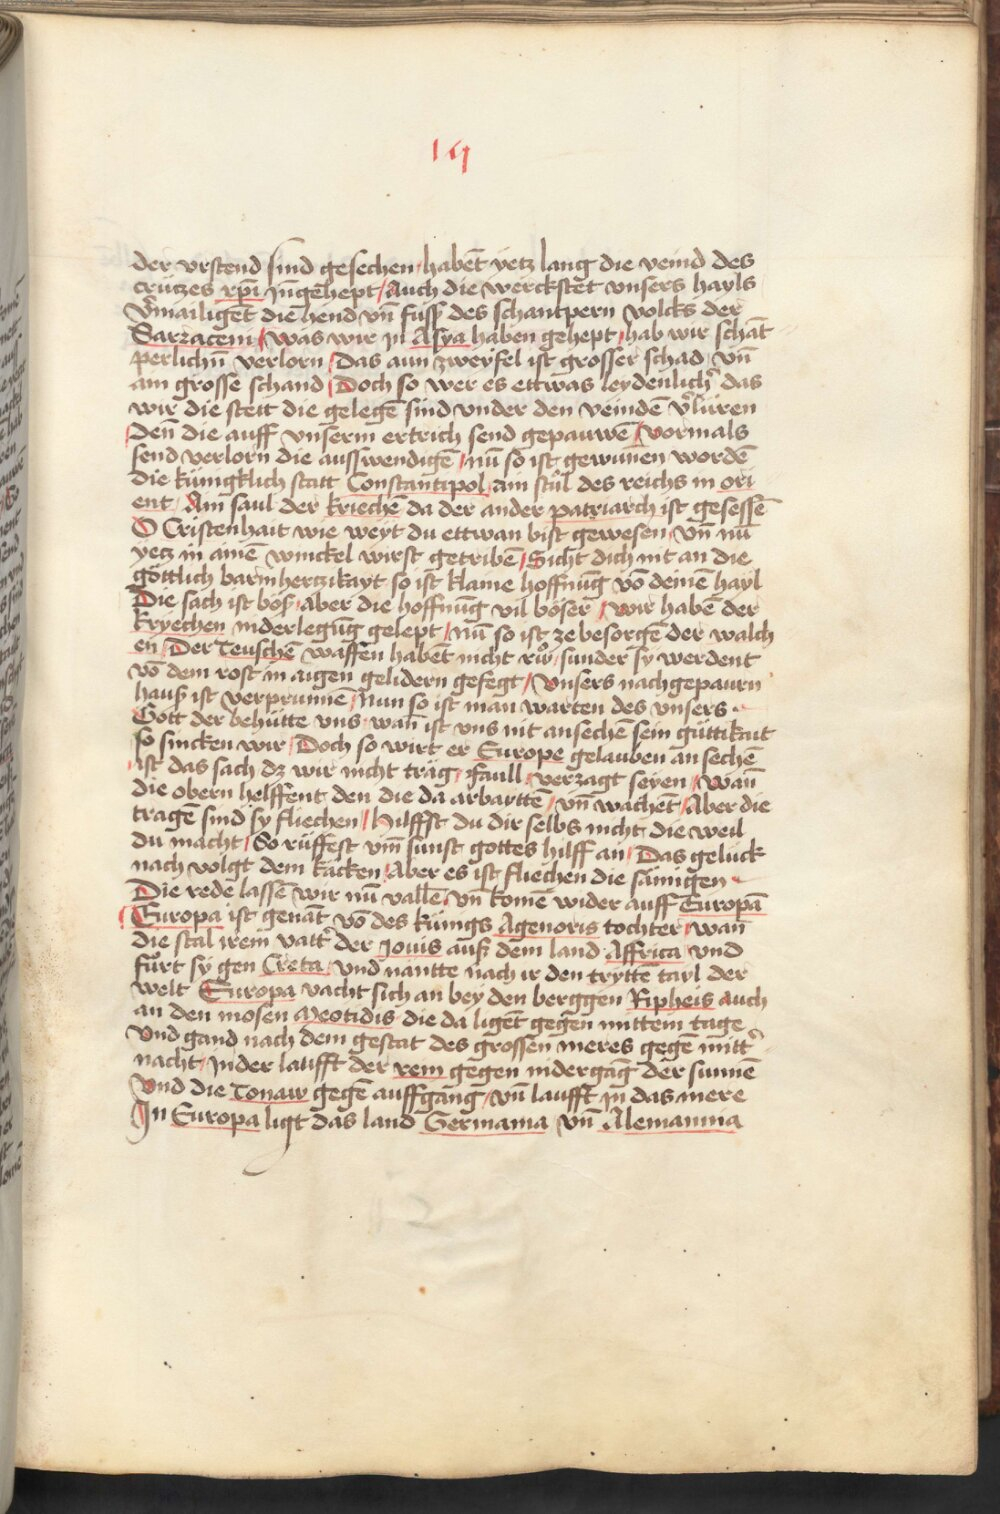 19
der vrstend sind gesechen / habēt yetz lang die veind des
crützes xp̄i Jn̄gehept / Auch die werckstet vnsers hayls
V̉mailigēt die hend vn̄ fuſſ des schantpern volcks der
Sarzaceni / Was wir jn Asya haben gehept / hab wir schāt
perlichn̄ verlorn / Das aun zweyfel ist grosser schad vn̄
ain grosse schand / Doch so wer es ettwas leydenlich̉ das
wir die stett die gelegē sind vnder den veindē v̉lüren
Den̄ die auff vnserm ertrich send gepauwē / vormals
send verlorn die ausswendigē / nū so ist gewūnen wordē
die küngklich statt Constantipol / ain stůl des reichs in ori
ent / Ain saul der kriechē da der ander patriarch ist gesessē
O Cristenhait wie weyt du ettwan bist gewesen / vn̄ nū
yetz in ainē winckel wirst getribē / Sicht dich nit an die
göttlich barmhertzikayt so ist klaine hoffnūg vō deinē hayl
Die sach ist bös / aber die hoffnūg vil böser / wir habē der
kryechen niderlegūg gelept / nū so ist ze besorgē der walch
en / Der Teuschē waffen habēt nicht rův / sunder sy werdent
vō dem rost in aigen gelidern gefegt / Vnsers nachgepaurn
hauſ ist verprunnē / Nun so ist man warten des vnsers
Gott der behütte vns / wan̄ ist vns nit ansechē sein güttikait
so sincken wir / Doch so wirt er Europe gelauben an sechē
ist das sach dz wir nicht träg / faull / verzagt seyen / Wan̄
die obern helffent den die da arbaittē / vn̄ wachēt / Aber die
tragē sind sy fliechen / Hilffst du dir selbs nicht die weil
du macht / So rüffest vm̄ sunst gottes hilff an / Das gelück
nach volgt dem käcken / Aber es ist fliechen die säinigen
Die rede lassē wir nū vallē / vn̄ komē wider auff Europā
Europa ist genāt vō des künigs Agenoris tochter / wan̄
die stal irem vatt̉ der Jouis auſ dem land Affrica / vnd
fůrt sy gen Creta / vnd nantte nach ir den tryttē tayl der
welt Europa vacht sich an bey den berggen Ripheis auch
an den mosen Meotidis die da ligēt gegen mittem tage
Vnd gand nach dem gestat des grossen meres gegē mitt̉
nacht / Jn der laufft der rein gegen nidergāg der sunnē
Vnd die Tonaw gegē auffgang / vn̄ laufft jn das mere
Jn Europa ligt das land Germania vn̄ Alemannia